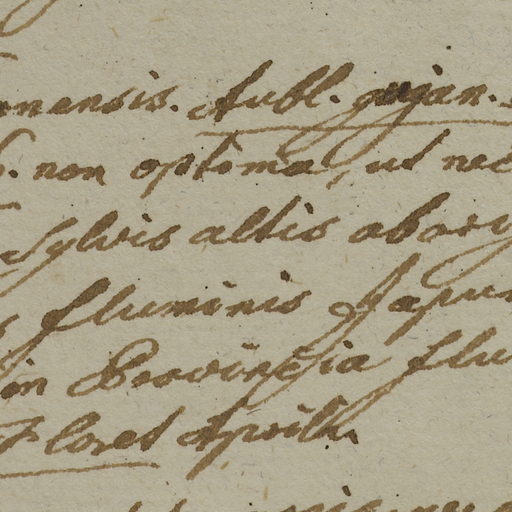 nensis. Aubl. gujan.
non optima, ut nec
Sylvis altis ad ory
fluminis Japur
in Provincia flu
Floret Aprili.